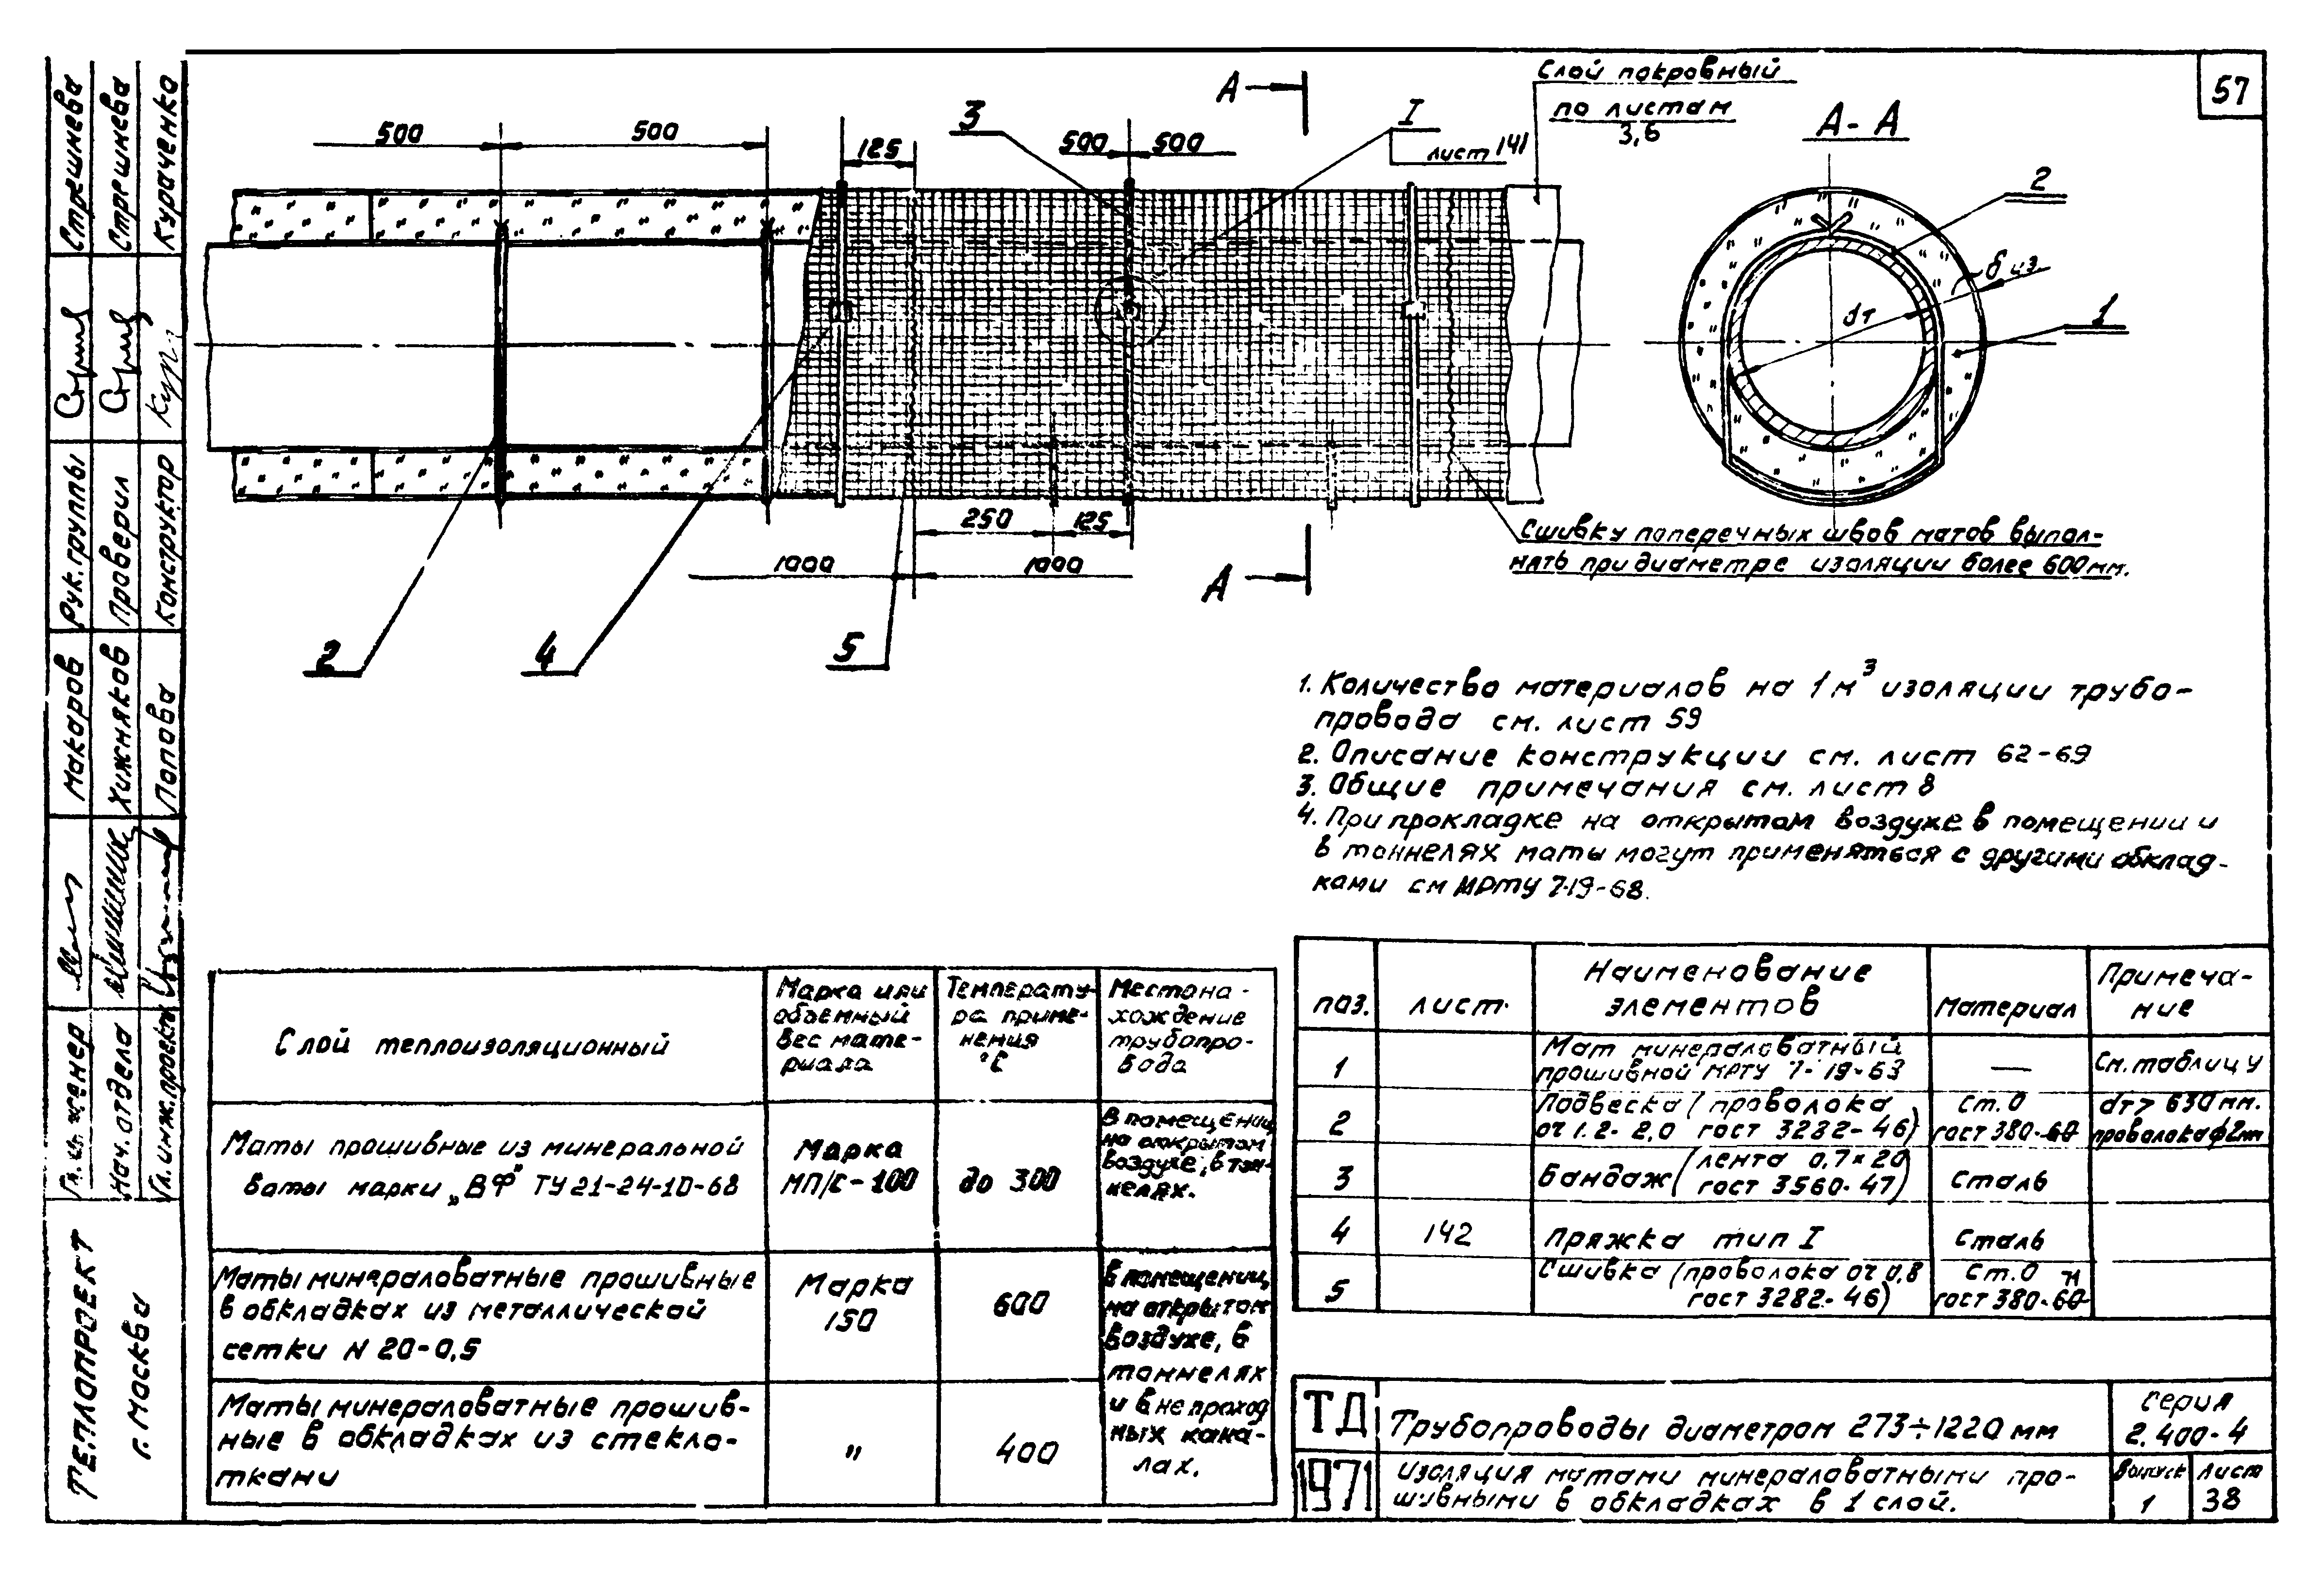 57
500
500
125
3
500
500
I
лист 141
А
Слой покровный
по листам
3,6
А-А
2
δ из.
dт
1
250
125
1000
1000
А
2
4
5
Сшивку поперечных швов матов выпол-
нять при диаметре изоляции более 600мм.
1. Количество материалов на 1м³ изоляции трубо-
провода см. лист 59
2. Описание конструкции см. лист 62-69
3. Общие примечания см. лист 8
4. При прокладке на открытом воздухе в помещении и
в тоннелях маты могут применяться с другими обклад-
ками см МРТУ 7-19-68.
Слой теплоизоляционный
Марка или
объемный
вес мате-
риала
Температу-
ра приме-
нения
°С
Местона-
хождение
трубопро-
вода
Маты прошивные из минеральной
ваты марки „ВФ" ТУ 21-24-10-68
Марка
МП/С-100
до 300
В помещении,
на открытом
воздухе, в тон-
нелях.
Маты минераловатные прошивные
в обкладках из металлической
сетки N 20-0,5
Марка
150
600
В помещении,
на открытом
воздухе, в
тоннелях
и в непроход
ных кана-
лах.
Маты минераловатные прошив-
ные в обкладках из стекло-
ткани
"
400
поз.
лист.
Наименование
элементов
Материал
Примеча-
ние
1
Мат минераловатный
прошивной МРТУ 7-19-63
—
См. таблицу
2
Подвеска (проволока
оч 1.2-2,0 гост 3282-46)
Ст.0
гост 380-60
dт> 630мм.
проволока ф2мм
3
Бандаж (лента 0,7×20
гост 3560-47)
Сталь
4
142
Пряжка тип I
Сталь
5
Сшивка (проволока оч 0,8
гост 3282-46)
Ст.0
71
гост 380-60
ТД
1971
Трубопроводы диаметром 273÷1220 мм
Изоляция матами минераловатными про-
шивными в обкладках в 1 слой.
Серия
2.400-4
Выпуск
1
Лист
38
Стрешнева
Стрешнева
Кураченко
Рук. группы
Проверил
Конструктор
Макаров
Хижняков
Попова
Гл. инженер
Нач. отдела
Гл. инж. проекта
ТЕПЛОПРОЕКТ
г. Москва